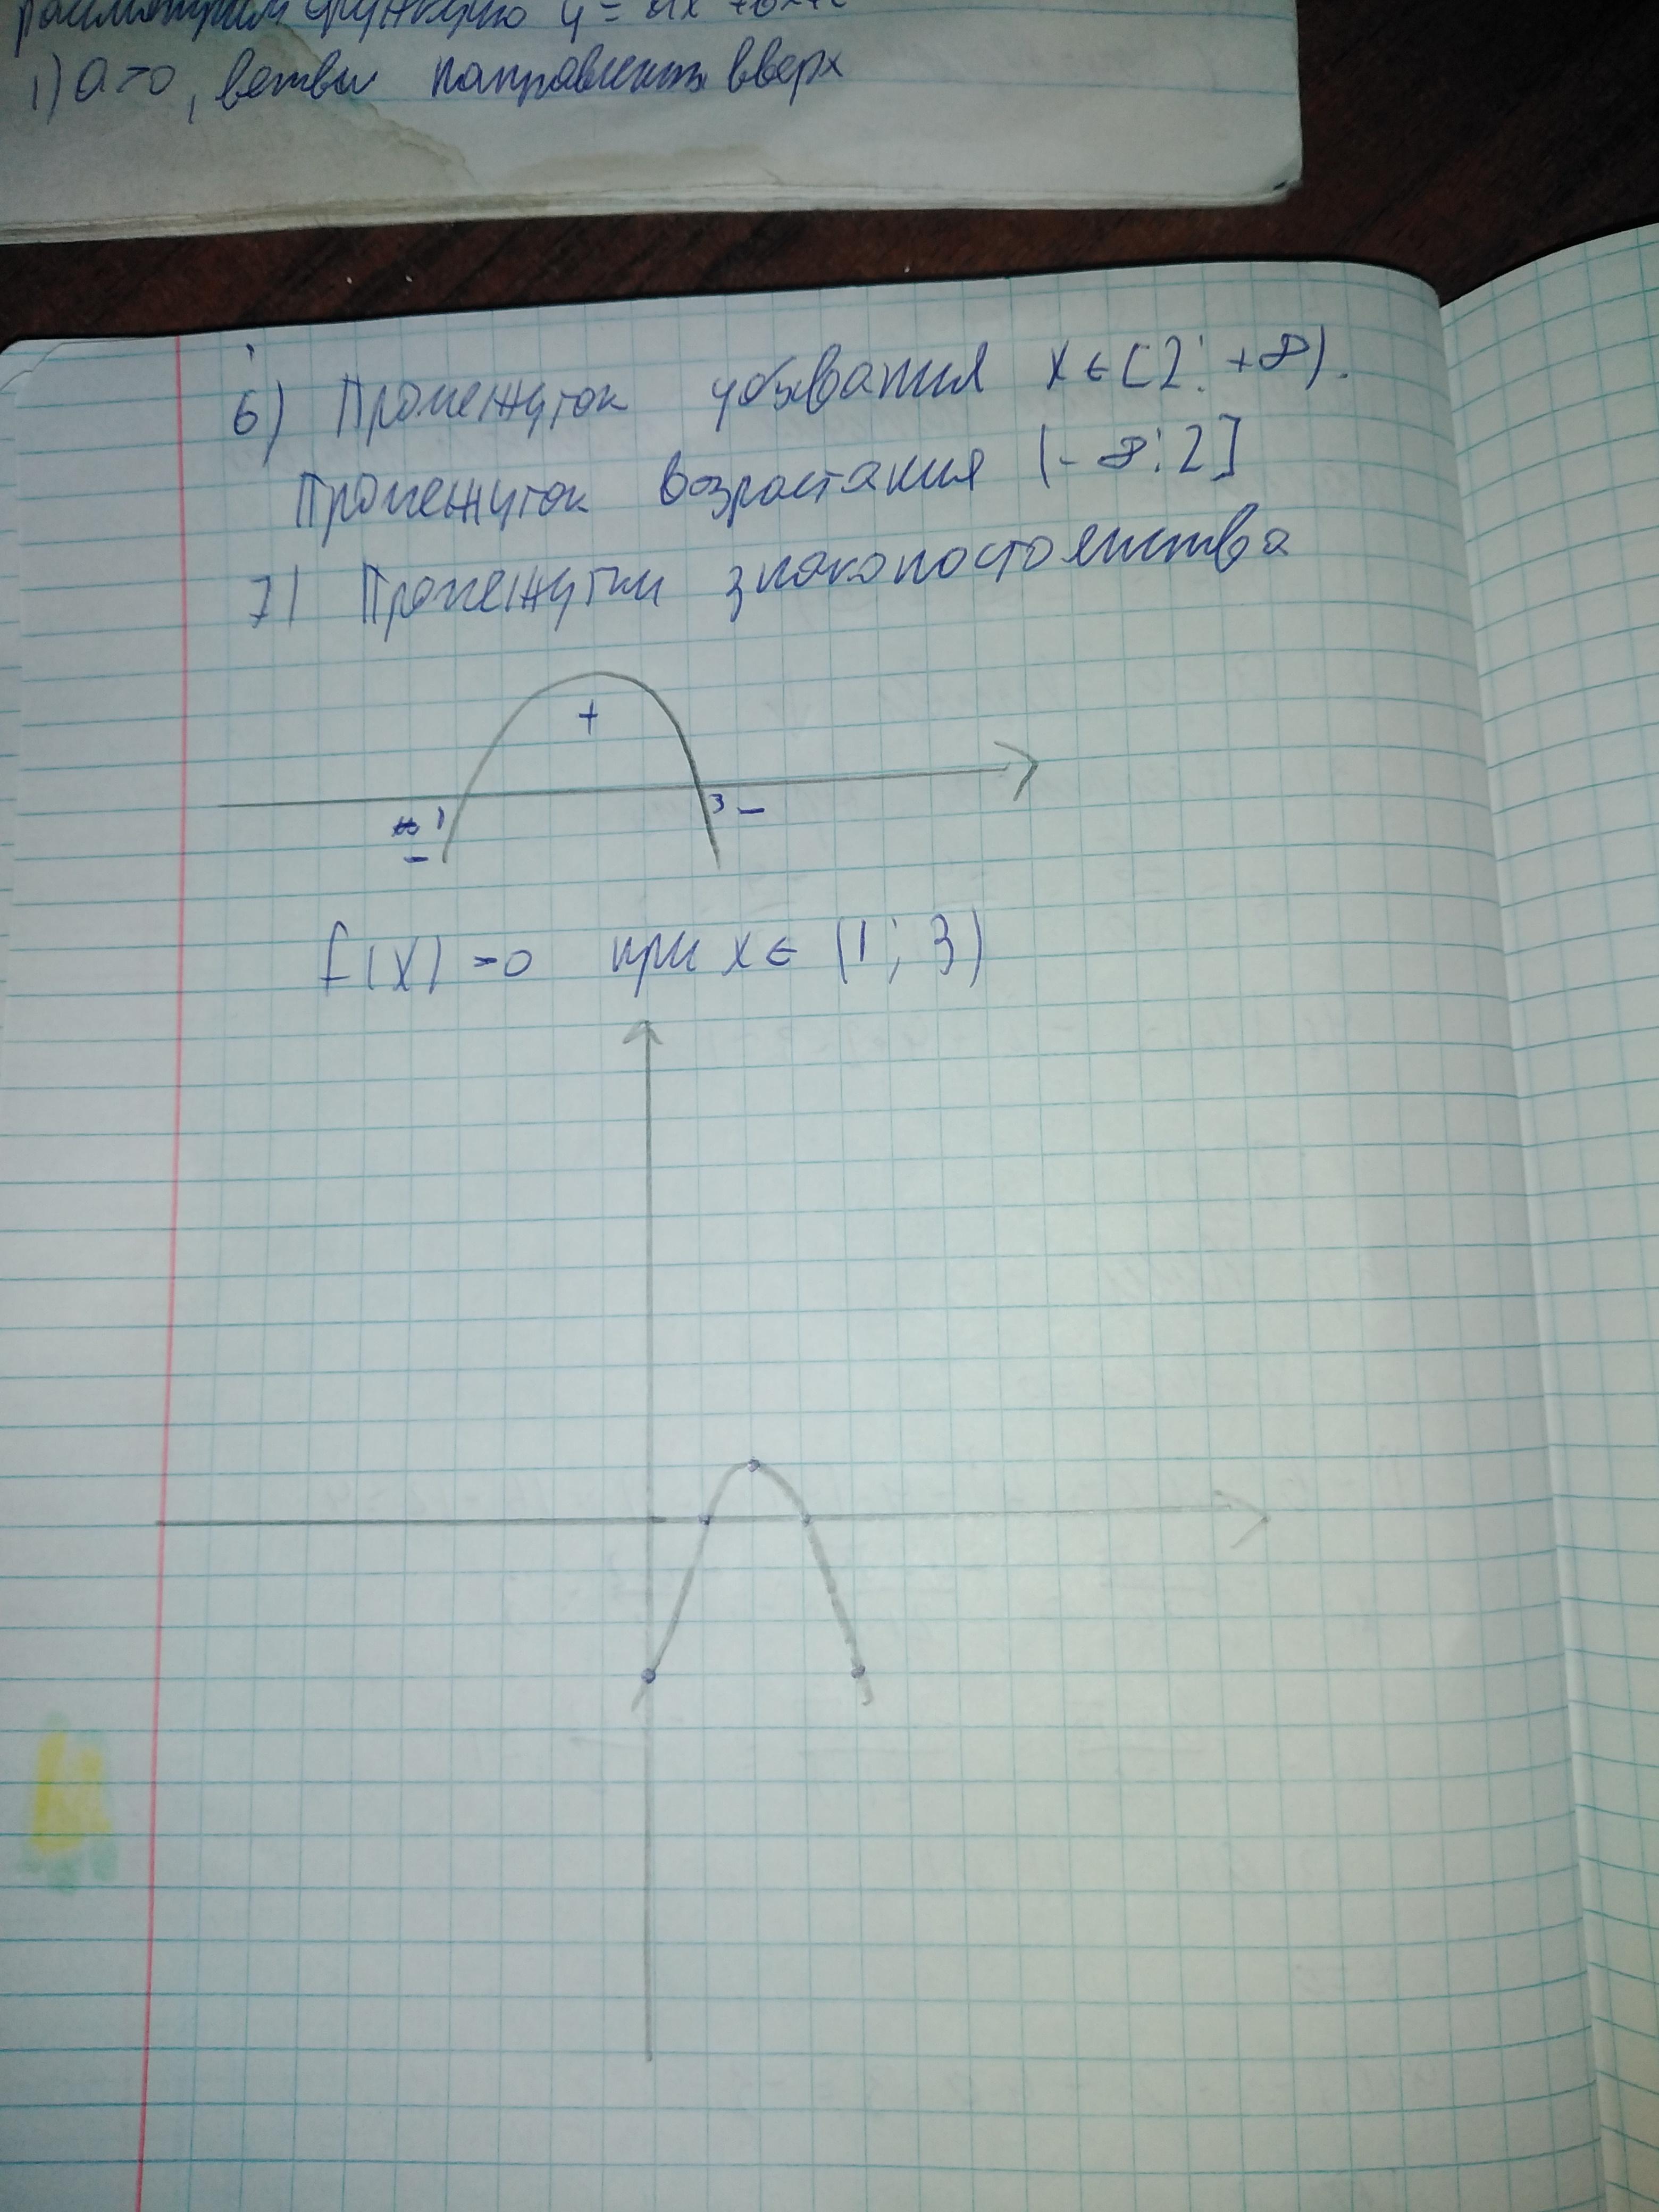 рассмотрим функцию y = ax +bx+c
1) a>0, ветви направлены вверх
6) Промежуток убывания x ∈ [2; +∞).
Промежуток возрастания (-∞; 2]
7) Промежутки знакопостоянства
+
1 3 -
-
f(x) >0 при x ∈ (1; 3)